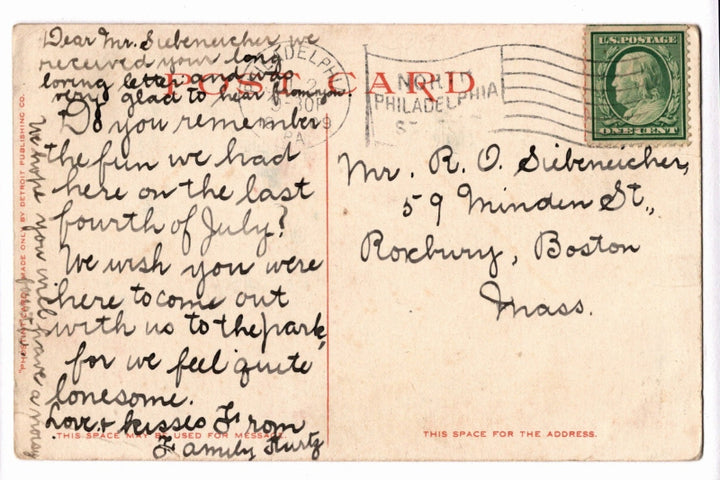 Dear Mr. Siebeneicher, we
received your long
loving letter and was
very glad to hear from you.
Do you remember
the fun we had
here on the last
fourth of July?
We wish you were
here to come out
with us to the park,
for we feel quite
lonesome.
Love & kisses From
Family Kurtz
We hope you will have a merry
POST CARD
PHILADELPHIA
2
9-30P
PA.
NORTH
PHILADELPHIA
U.S. POSTAGE
ONE CENT
Mr. R. O. Siebeneicher,
59 Minden St.,
Roxbury, Boston
Mass.
MADE ONLY BY DETROIT PUBLISHING CO.
THIS SPACE MAY BE USED FOR MESSAGE.
THIS SPACE FOR THE ADDRESS.